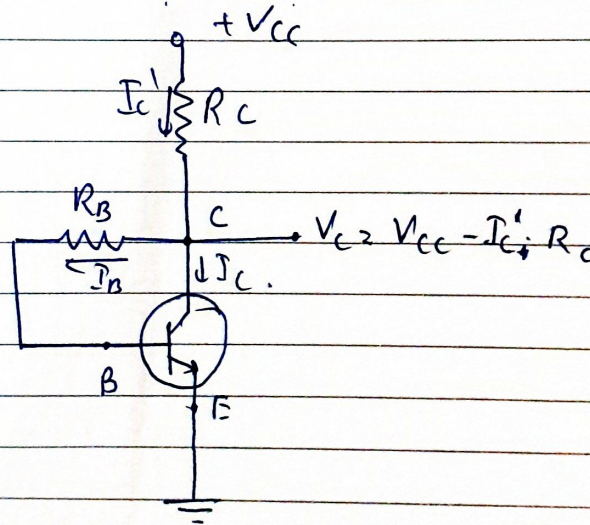 + VCC
IC' RC
RB
C
VC = VCC - IC' . RC
IB
IC .
B
E